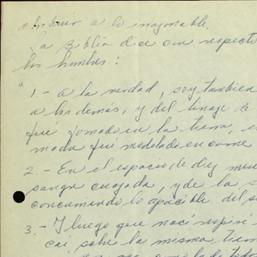 a lo imaginable.
La Biblia dice con respecto
los hombres:
1.- A la verdad, soy también
a los demás, y del linaje de
que formado en la tierra, en
madre fui modelado en carne
2.- En el espacio de diez mes
sangre cuajada, y de la s
concurriendo lo apacible del s
3.- Y luego que nací respiré
caí sobre la misma tierr